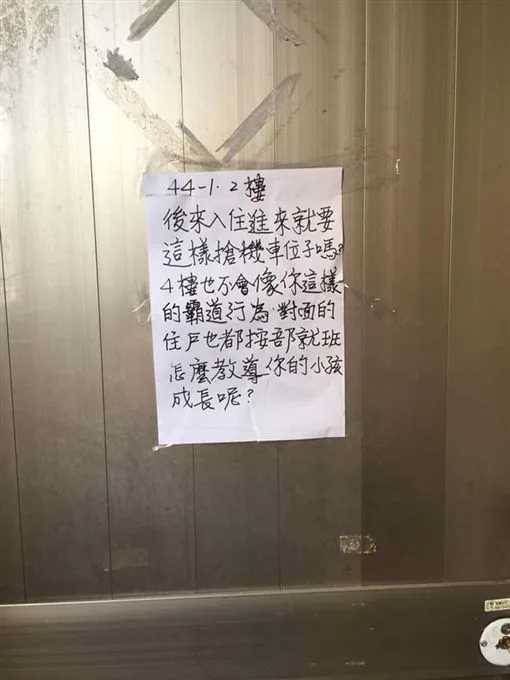 44-1.2樓
後來入住進來就要
這樣搶機車位子嗎?
4樓也不會像你這樣
的霸道行為.對面的
住戶也都按部就班
怎麼教導你的小孩
成長呢?